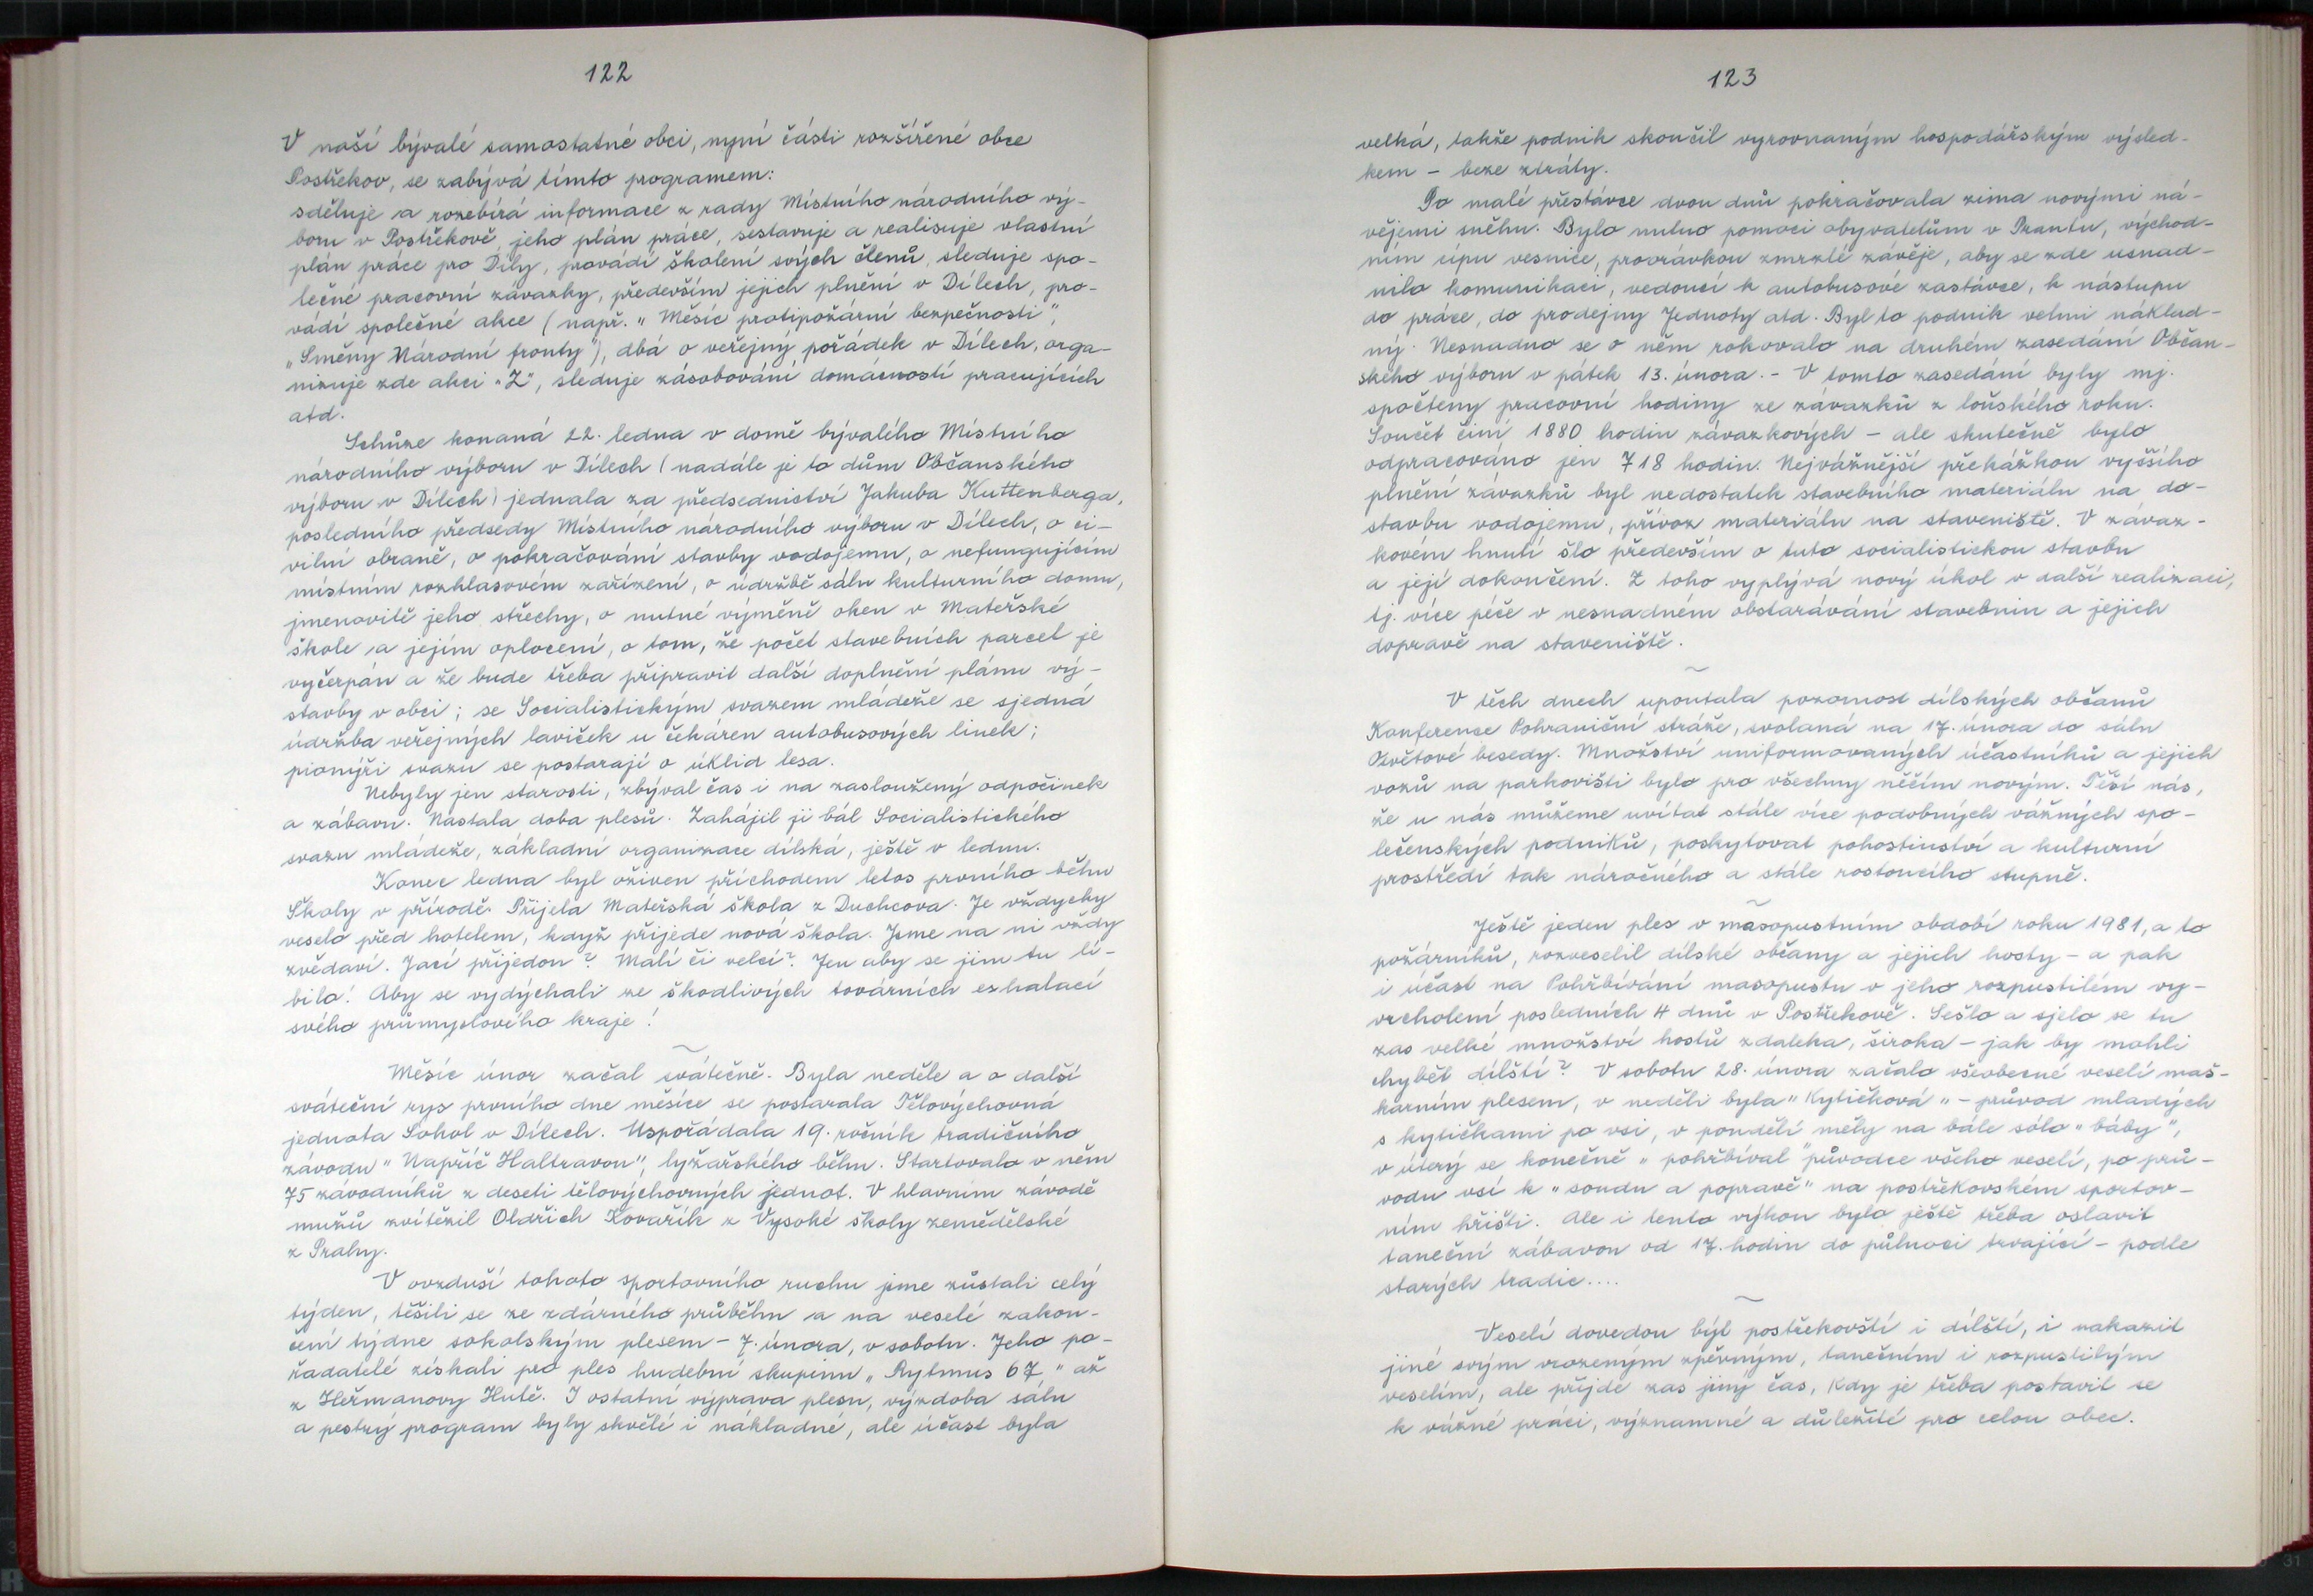 122
V naší bývalé samostatné obci, nyní části rozšířené obce
Postřekov, se zabývá tímto programem:
sděluje a rozebírá informace z rady Místního národního vý-
boru v Postřekově, jeho plán práce, sestavuje a realisuje vlastní
plán práce pro Díly, provádí školení svých členů, sleduje spo-
lečné pracovní závazky, především jejich plnění v Dílech, pro-
vádí společné akce (např. „Měsíc protipožární bezpečnosti",
„Směny Národní fronty"), dbá o veřejný pořádek v Dílech, orga-
nizuje zde akci „Z", sleduje zásobování domácností pracujících
atd.
Schůze konaná 22. ledna v domě bývalého Místního
národního výboru v Dílech (nadále je to dům Občanského
výboru v Dílech) jednala za předsednictví Jakuba Kuttenberga,
posledního předsedy Místního národního výboru v Dílech, o ci-
vilní obraně, o pokračování stavby vodojemu, o nefungujícím
místním rozhlasovém zařízení, o údržbě sálu kulturního domu,
jmenovitě jeho střechy, o nutné výměně oken v Mateřské
škole a jejím oplocení, o tom, že počet stavebních parcel je
vyčerpán a že bude třeba připravit další doplnění plánu vý-
stavby v obci; se Socialistickým svazem mládeže se sjedná
údržba veřejných laviček u čekáren autobusových linek;
pionýři svazu se postarají o úklid lesa.
Nebyly jen starosti, zbýval čas i na zasloužený odpočinek
a zábavu. Nastala doba plesů. Zahájil ji bál Socialistického
svazu mládeže, základní organizace dílská, ještě v lednu.
Konec ledna byl oživen příchodem letos prvního běhu
Školy v přírodě. Přijela Mateřská škola z Duchcova. Je vždycky
veselo před hotelem, když přijede nová škola. Jsme na ni vždy
zvědaví. Jací přijedou? Malí či velcí? Jen aby se jim tu lí-
bilo! Aby se vydýchali ze škodlivých továrních exhalací
svého průmyslového kraje!
~
Měsíc únor začal svátečně. Byla neděle a o další
sváteční rys prvního dne měsíce se postarala Tělovýchovná
jednota Sokol v Dílech. Uspořádala 19. ročník tradičního
závodu „Napříč Haltravou", lyžařského běhu. Startovalo v něm
75 závodníků z deseti tělovýchovných jednot. V hlavním závodě
mužů zvítězil Oldřich Kovařík z Vysoké školy zemědělské
z Prahy.
V ovzduší tohoto sportovního ruchu jsme zůstali celý
týden, těšili se ze zdárného průběhu a na veselé zakon-
čení týdne sokolským plesem - 7. února, v sobotu. Jeho po-
řadatelé získali pro ples hudební skupinu „Rytmus 67" až
z Heřmanovy Hutě. I ostatní výprava plesu, výzdoba sálu
a pestrý program byly skvělé i nákladné, ale účast byla
123
velká, takže podnik skončil vyrovnaným hospodářským výsled-
kem - beze ztráty.
Po malé přestávce dvou dnů pokračovala zima novými ná-
vějemi sněhu. Bylo nutno pomoci obyvatelům v Prantu, východ-
ním cípu vesnice, provrávkou zmrzlé závěje, aby se zde usnad-
nila komunikaci, vedoucí k autobusové zastávce, k nástupu
do práce, do prodejny Jednoty atd. Byl to podnik velmi náklad-
ný. Nesnadno se o něm rokovalo na druhém zasedání Občan-
ského výboru v pátek 13. února. - V tomto zasedání byly mj.
spočteny pracovní hodiny ze závazků z loňského roku.
Součet činí 1880 hodin závazkových - ale skutečně bylo
odpracováno jen 718 hodin. Nejvážnější překážkou vyššího
plnění závazků byl nedostatek stavebního materiálu na do-
stavbu vodojemu, přívoz materiálu na staveniště. V závaz-
kovém hnutí šlo především o tuto socialistickou stavbu
a její dokončení. Z toho vyplývá nový úkol v další realizaci,
tj. více péče v nesnadném obstarávání stavebnin a jejich
dopravě na staveniště.
~
V těch dnech upoutala pozornost dílských občanů
Konference Pohraniční stráže, svolaná na 17. února do sálu
Osvětové besedy. Množství uniformovaných účastníků a jejich
vozů na parkovišti bylo pro všechny něčím novým. Těší nás,
že u nás můžeme uvítat stále více podobných vážných spo-
lečenských podniků, poskytovat pohostinství a kulturní
prostředí tak náročného a stále rostoucího stupně.
~
Ještě jeden ples v masopustním období roku 1981, a to
požárníků, rozveselil dílské občany a jejich hosty - a pak
i účast na Pohřbívání masopustu v jeho rozpustilém vy-
vrcholení posledních 4 dnů v Postřekově. Sešlo a sjelo se tu
zas velké množství hostů zdaleka, široka - jak by mohli
chybět dílští? V sobotu 28. února začalo všeobecné veselí maš-
karním plesem, v neděli byla „Kytičková" - průvod mladých
s kytičkami po vsi, v pondělí měly na bále sólo „báby",
v úterý se konečně „pohřbíval" původce všeho veselí, po prů-
vodu vsí k „soudu a popravě" na postřekovském sportov-
ním hřišti. Ale i tento výkon bylo ještě třeba oslavit
taneční zábavou od 17. hodin do půlnoci trvající - podle
starých tradic....
~
Veselí dovedou být postřekovští i dílští, i nakazit
jiné svým vrozeným zpěvným, tanečním i rozpustilým
veselím, ale přijde zas jiný čas, kdy je třeba postavit se
k vážné práci, významné a důležité pro celou obec.